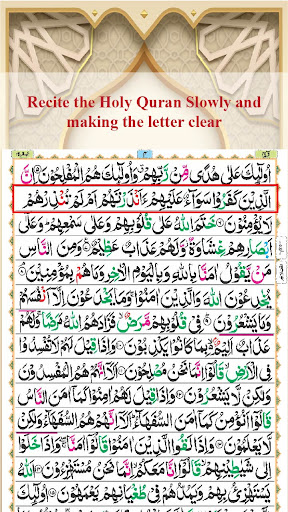 Recite the Holy Quran Slowly and
making the letter clear
اُولٰٓئِكَ عَلٰی هُدًی مِّنْ رَّبِّهِمْ وَاُولٰٓئِكَ هُمُ الْمُفْلِحُوْنَ اِنَّ
الَّذِیْنَ كَفَرُوْا سَوَآءٌ عَلَیْهِمْ ءَاَنْذَرْتَهُمْ اَمْ لَمْ تُنْذِرْهُمْ
لَا یُؤْمِنُوْنَ خَتَمَ اللّٰهُ عَلٰی قُلُوْبِهِمْ وَعَلٰی سَمْعِهِمْ وَعَلٰۤی
اَبْصَارِهِمْ غِشَاوَةٌ وَّلَهُمْ عَذَابٌ عَظِیْمٌ وَمِنَ النَّاسِ
مَنْ یَّقُوْلُ اٰمَنَّا بِاللّٰهِ وَبِالْیَوْمِ الْاٰخِرِ وَمَا هُمْ بِمُؤْمِنِیْنَ
یُخٰدِعُوْنَ اللّٰهَ وَالَّذِیْنَ اٰمَنُوْا وَمَا یَخْدَعُوْنَ اِلَّاۤ اَنْفُسَهُمْ
وَمَا یَشْعُرُوْنَ فِیْ قُلُوْبِهِمْ مَّرَضٌ فَزَادَهُمُ اللّٰهُ مَرَضًا وَلَهُمْ
عَذَابٌ اَلِیْمٌ بِمَا كَانُوْا یَكْذِبُوْنَ وَاِذَا قِیْلَ لَهُمْ لَا تُفْسِدُوْا
فِی الْاَرْضِ قَالُوْۤا اِنَّمَا نَحْنُ مُصْلِحُوْنَ اَلَاۤ اِنَّهُمْ هُمُ الْمُفْسِدُوْنَ
وَلٰكِنْ لَّا یَشْعُرُوْنَ وَاِذَا قِیْلَ لَهُمْ اٰمِنُوْا كَمَاۤ اٰمَنَ النَّاسُ
قَالُوْۤا اَنُؤْمِنُ كَمَاۤ اٰمَنَ السُّفَهَآءُ اَلَاۤ اِنَّهُمْ هُمُ السُّفَهَآءُ وَلٰكِنْ
لَّا یَعْلَمُوْنَ وَاِذَا لَقُوا الَّذِیْنَ اٰمَنُوْا قَالُوْۤا اٰمَنَّا وَاِذَا خَلَوْا
اِلٰی شَیٰطِیْنِهِمْ قَالُوْۤا اِنَّا مَعَكُمْ اِنَّمَا نَحْنُ مُسْتَهْزِءُوْنَ اَللّٰهُ
یَسْتَهْزِئُ بِهِمْ وَیَمُدُّهُمْ فِیْ طُغْیَانِهِمْ یَعْمَهُوْنَ اُولٰٓئِكَ